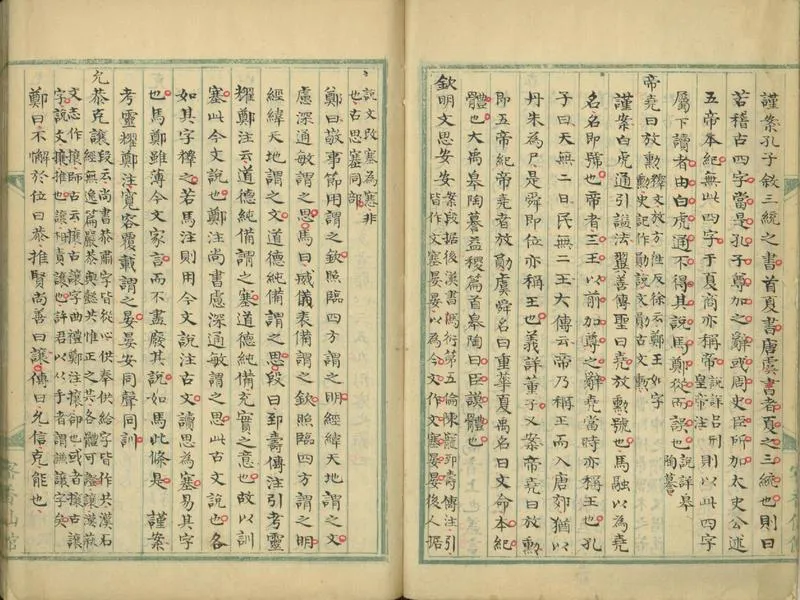 謹案孔子敘三統之書首夏書唐虞書者夏之三統也則曰
若稽古四字當是孔子尊加之辭或周史臣所加太史公述
五帝本紀無此四字于夏商亦稱帝說詳呂刑皇帝注則以此四字
屬下讀者由白虎通不得其說馬鄭從而誤也說詳皋陶謨
帝堯曰放勳釋文放方往反徐云鄭王如字勳史記作勛說文勛古文勳
謹案白虎通引謚法翼善傳聖曰堯放勳號也馬融以為堯
名名即號也帝者三王以前加尊之辭堯當時亦稱王也孔
子曰天無二日民無二王大傳云帝乃稱王而入唐郊猶以
丹朱為尸是舜即位亦稱王也義詳董子又案帝堯曰放勳
即五帝紀帝堯者放勳虞舜名曰重華夏禹名曰文命本紀
體也大禹皋陶謩益稷篇首皋陶曰臣謨體也
欽明文思安安案段据後漢書馮衍第五倫陳寵郅壽傳注引皆作文塞晏晏以為今文作文塞晏晏後人据
說文改塞為𡫳非也古思塞同部
鄭曰敬事節用謂之欽照臨四方謂之明經緯天地謂之文
慮深通敏謂之思馬曰威儀表備謂之欽照臨四方謂之明
經緯天地謂之文道德純備謂之思段曰郅壽傳注引考靈
耀鄭注云道德純備謂之塞道德純備充實之意也故以訓
塞此今文說也鄭注尚書慮深通敏謂之思此古文說也各
如其字釋之若馬注則用今文說注古文讀思為塞易其字
也馬鄭雖薄今文家言而不盡廢其說如馬此條是 謹案
考靈耀鄭注寬容覆載謂之晏晏安同聲同訓
允恭克讓段云尚書恭肅字皆從心供奉供給字皆作共漢石經無逸篇嚴恭與懿共惟正之共各體可證讓漢蓺
文志作攘師古云攘古讓字曲禮鄭注攘卻也或者攘古讓字說文攘推也讓相責讓也許君以以手者謂讓字矣
鄭曰不懈於位曰恭推賢尚善曰讓傳曰允信克能也